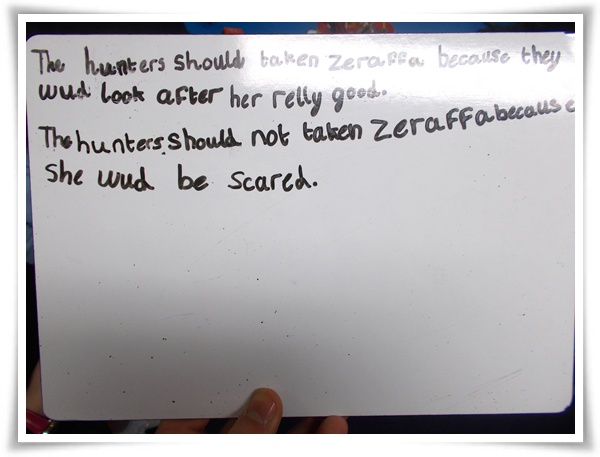 The hunters should taken Zeraffa because they
wud look after her relly good.
The hunters should not taken Zeraffa because
She wud be scared.